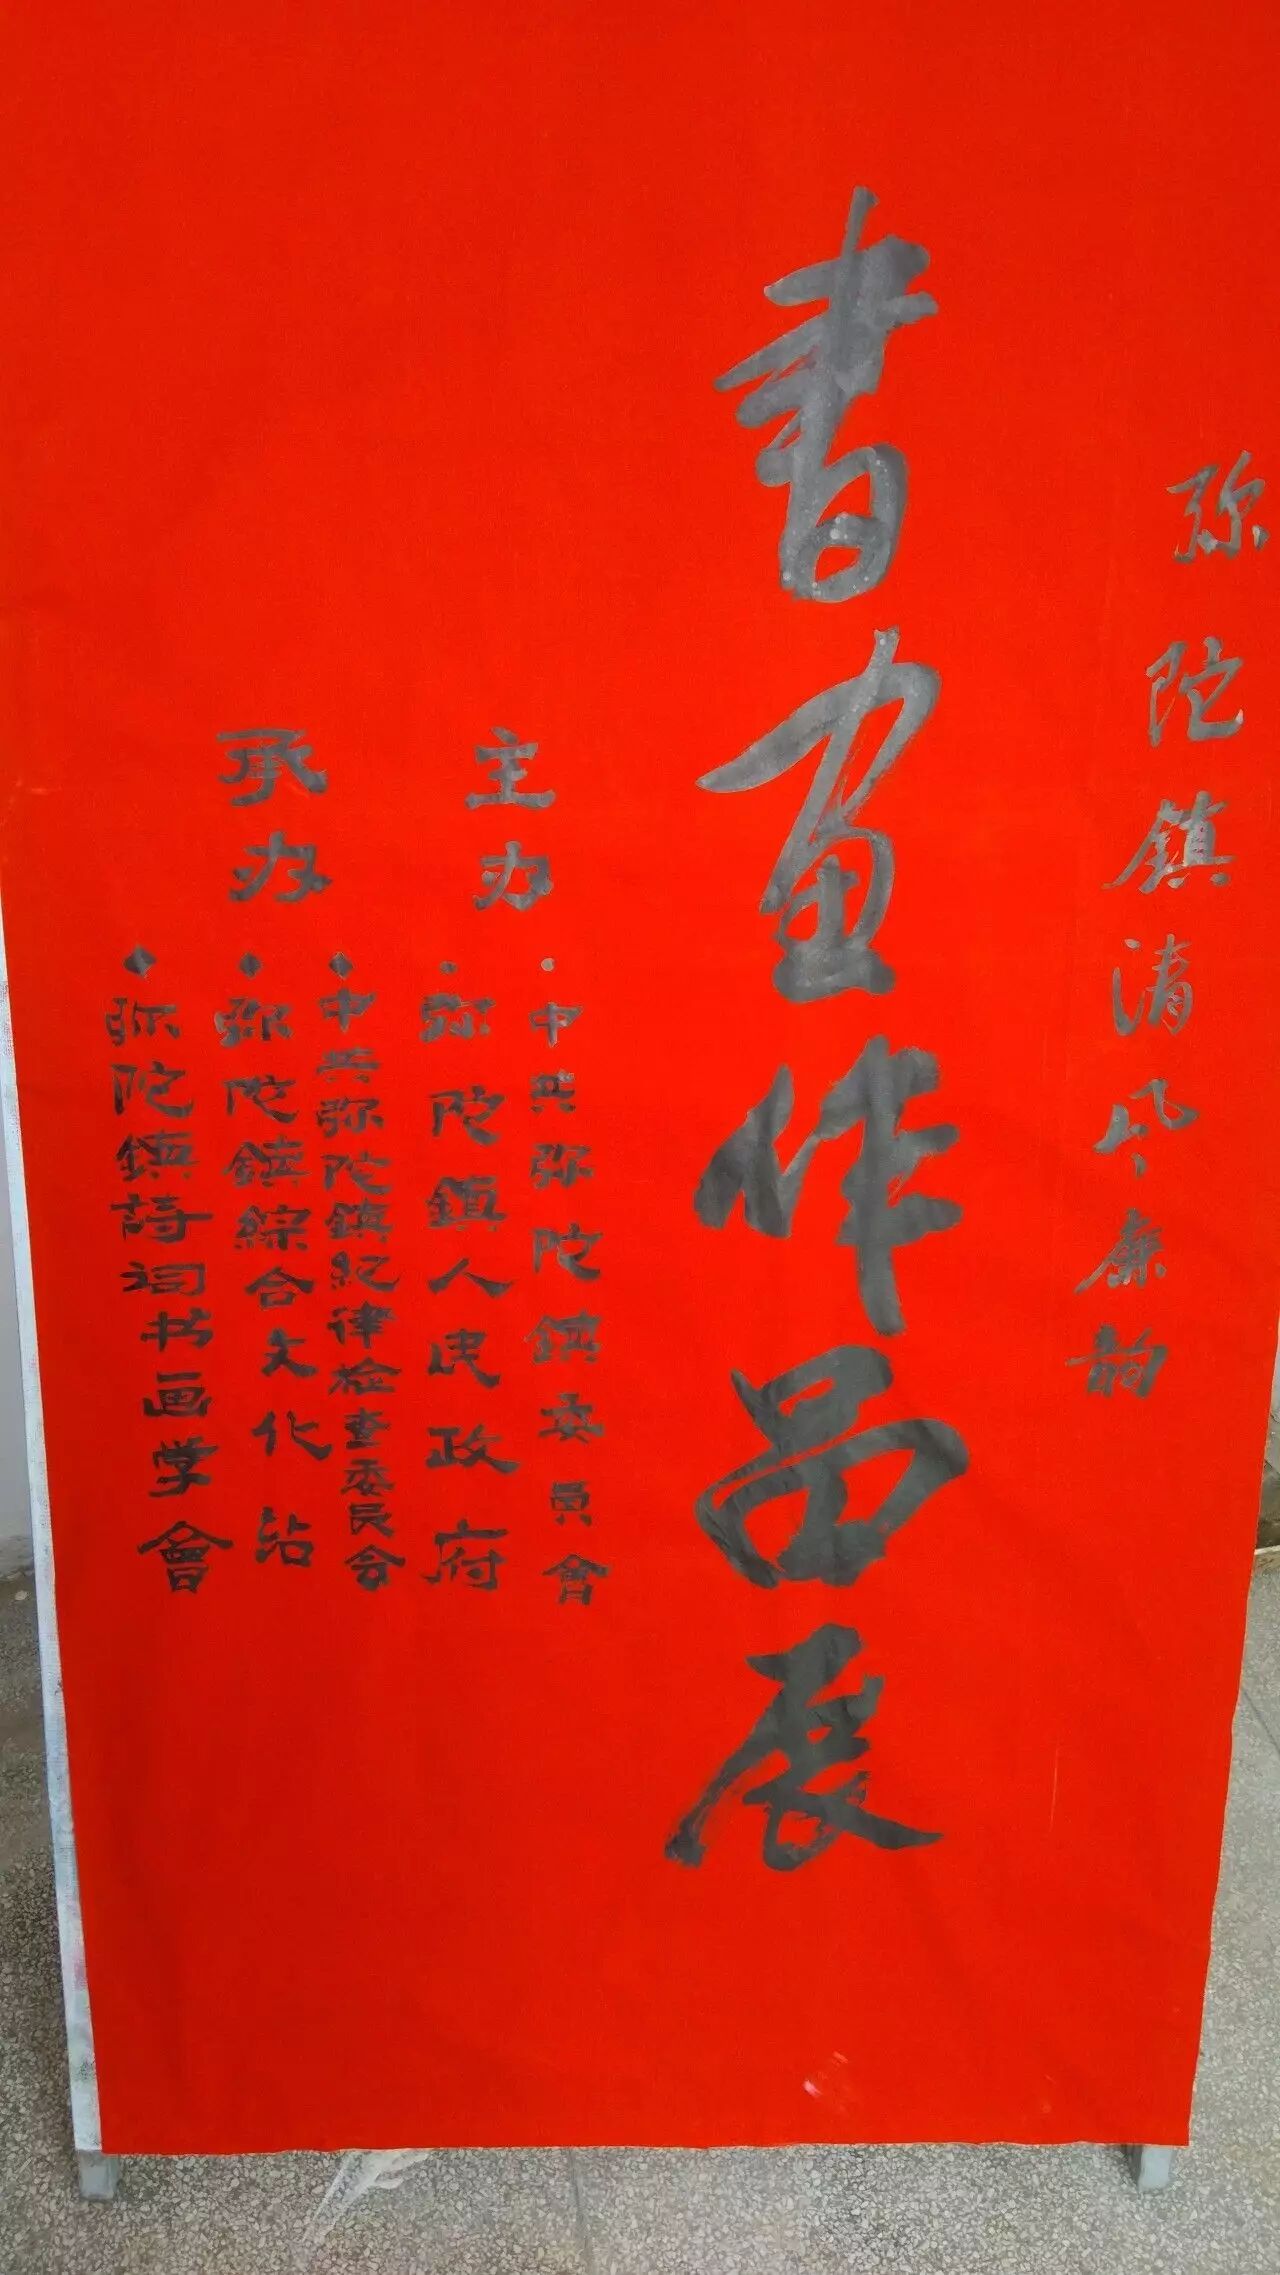 弥陀鎮清风廉韵
書画作品展
主办
·中共弥陀鎮委員會
·弥陀鎮人民政府
承办
◆中共弥陀鎮纪律检查委员会
◆弥陀鎮綜合文化站
◆弥陀鎮詩词书画学會